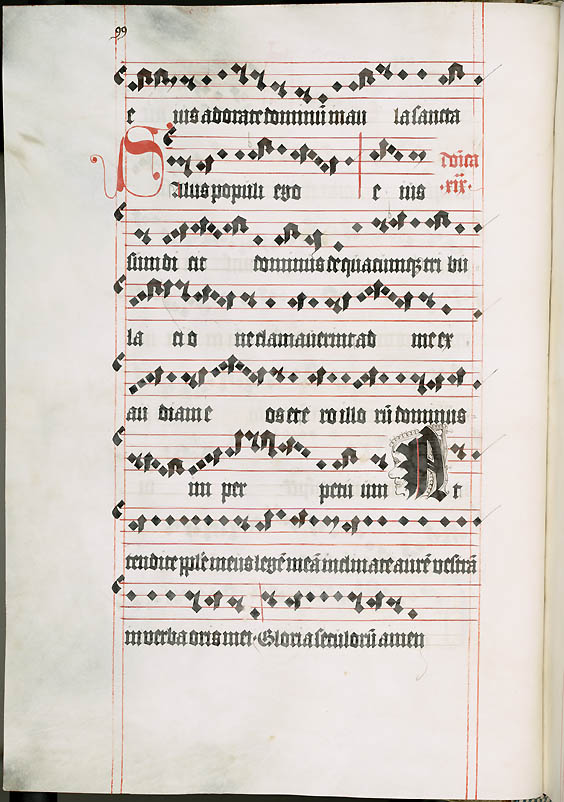 99
e ius adorate dominū in au la sancta
Salus populi ego e ius
dn̄ica
·xix·
sum di cit dominus de quacumqꝫ tri bu
la ci o ne clamaverint ad me ex
au diam e os et e ro illo rū dominus
in per petu um At
tendite pple meus legē meā inclinate aurē vestrā
in verba oris mei· Gloria seculorū amen